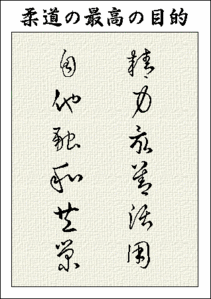 柔道の最高の目的
精力最善活用
自他融和共栄